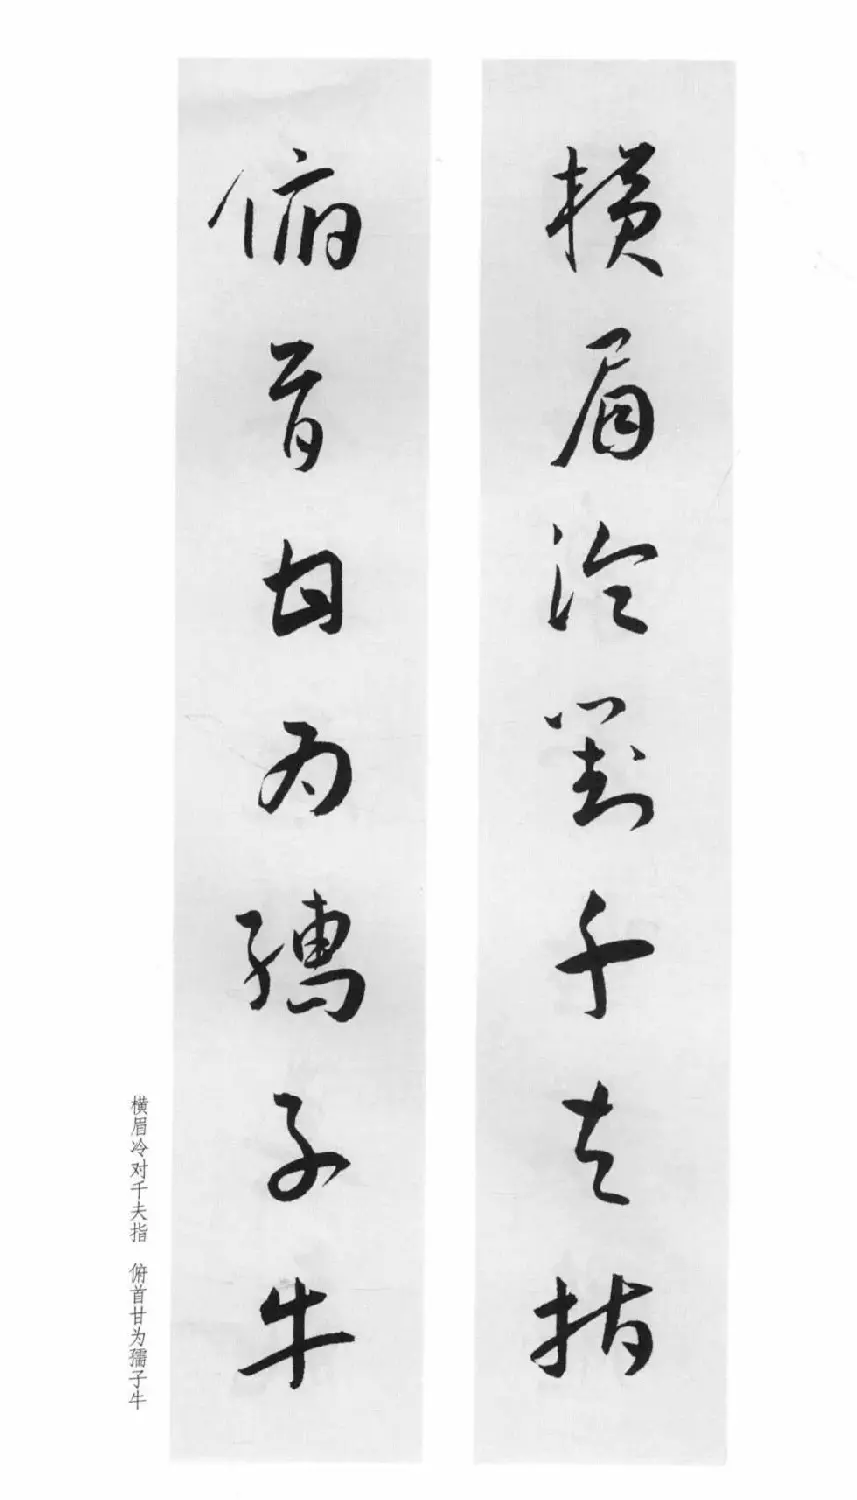 横眉冷對千夫指
俯首甘为孺子牛
横眉冷对千夫指 俯首甘为孺子牛